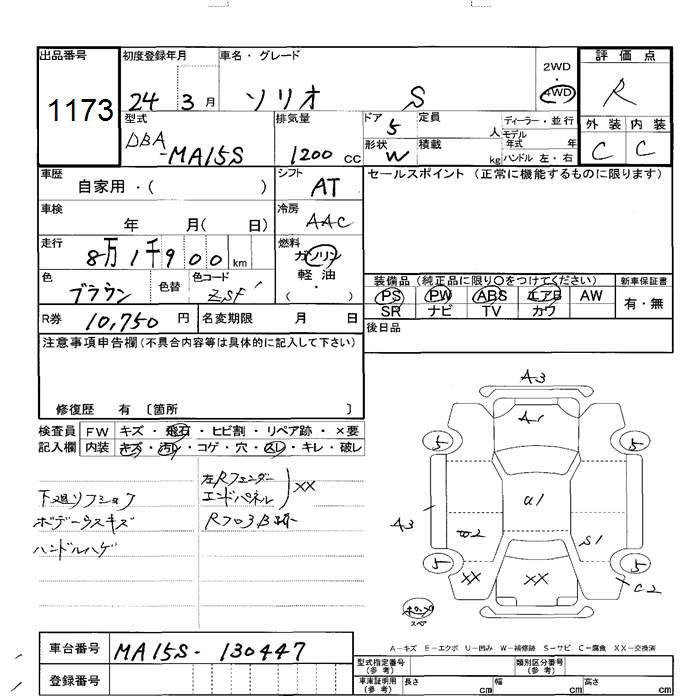 出品番号 1173
初度登録年月 24 3月
車名・グレード ソリオ S
2WD・4WD
評価点 R
外装 C 内装 C
型式 DBA-MA15S
排気量 1200cc
ドア 5
形状 W
定員 人
積載 kg
ディーラー・並行
モデル年式 年式
ハンドル 左・右
車歴 自家用・( )
シフト AT
セールスポイント (正常に機能するものに限ります)
車検 年 月( 日)
冷房 AAC
走行 8万1千900km
燃料 ガソリン 軽油・( )
色 ブラウン 色替 色コード ZSF
装備品 (純正品に限り〇をつけてください)
新車保証書
PS PW ABS エアB AW 有・無
SR ナビ TV カワ
R券 10,750円 名変期限 月 日
後日品
注意事項申告欄 (不具合内容等は具体的に記入して下さい)
修復歴 有 〔箇所 〕
検査員記入欄
FW キズ・飛石・ヒビ割・リペア跡・×要
内装 キズ・汚レ・コゲ・穴・スレ・キレ・破レ
左Rフェンダー
エンドパネル XX
下廻リフショク
ボデーウスキズ
ハンドルハゲ
A3
A1
5 5
U1
A3
W2 S1
5 5
XX XX C2
スペア
A-キズ E-エクボ U-凹み W-補修跡 S-サビ C-腐食 XX-交換済
車台番号 MA15S-130447
登録番号
型式指定番号(参考) 類別区分番号(参考)
車庫証明用(参考) 長さ cm 幅 cm 高さ cm